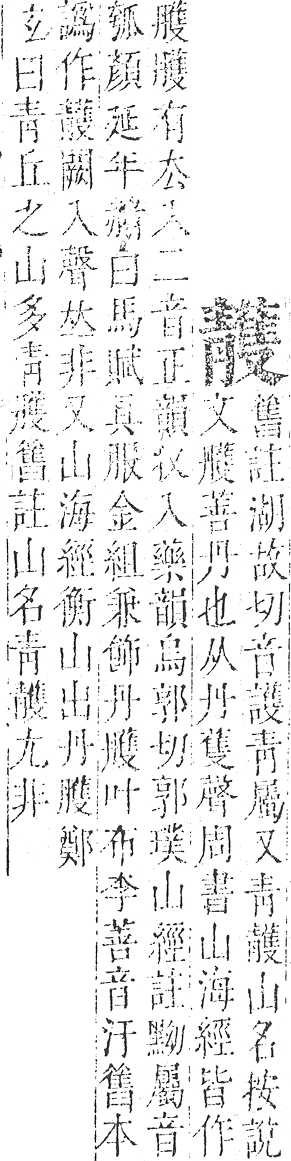 䨼
舊註湖故切音護靑屬又靑䨼山名按說
文雘善丹也从丹隻聲周書山海經皆作
雘雘有厺入二音正韻收入藥韻烏郭切郭璞山經註黝屬音
瓠顏延年赭白馬賦具服金組兼飾丹雘叶布李善音汙舊本
譌作䨼闕入聲𠀤非又山海經衡山出丹雘鄭
玄曰靑丘之山多靑雘舊註山名靑䨼尤非